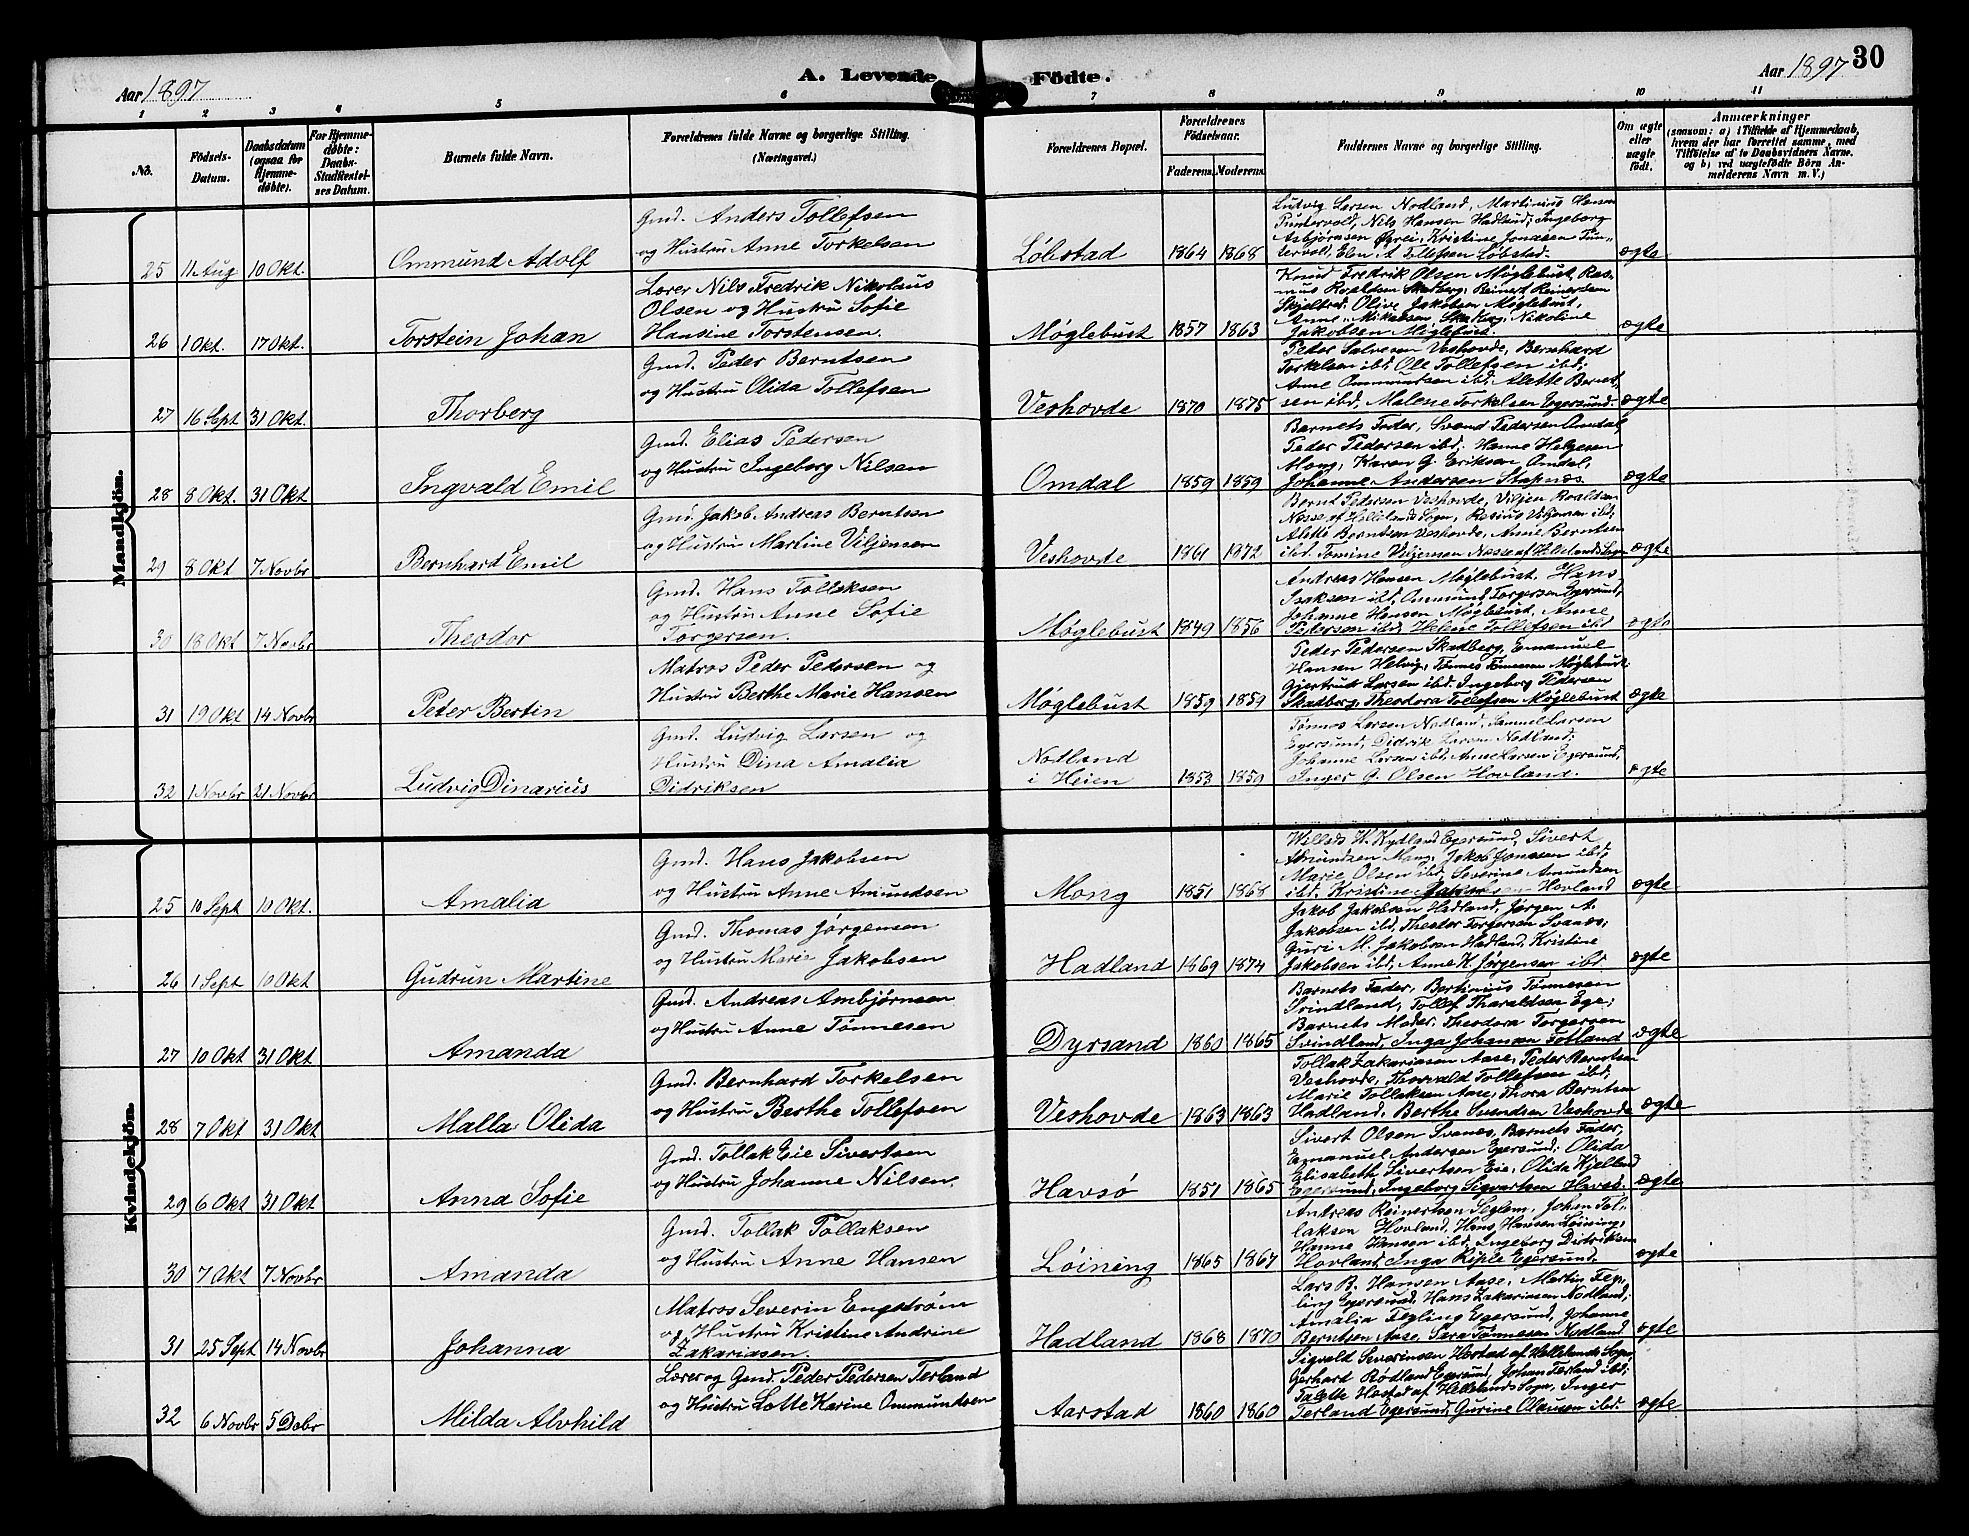 Aar 1897
A. Levende Födte.
Aar 1897 30
1 2 3 4 5 6 7 8 9 10 11
No.
Födsels-Datum.
Daabsdatum (ogsaa for Hjemmedöbte).
For Hjemmedöbte: Daabs-Stadfæstelses Datum.
Barnets fulde Navn.
Forældrenes fulde Navne og borgerlige Stilling. (Næringsvei.)
Forældrenes Bopæl.
Forældrenes Födselsaar.
Faderens. Moderens.
Faddernes Navne og borgerlige Stilling.
Om ægte eller uægte födt.
Anmærkninger
(saasom: a) i Tilfælde af Hjemmedaab, hvem der har forrettet samme, med Tilföielse af to Daabsvidners Navne, og b) ved uægtefödte Börn Anmelderens Navn m. V.)
Mandkjön.
25 11 Aug 10 Okt. Ommund Adolf
Gmd. Anders Tollefsen
og Hustru Anne Torkelsen
Løbstad 1864 1868
Ludvig Larsen Nodland, Martinius Hansen
Puntervold, Nils Hansen Hadland; Ingeborg
Asbjørnsen Øyrei, Kristine Jonassen Pun-
tervold, Elen A. Tollefsen Løbstad.
ægte
26 1 Okt. 17 Okt. Torstein Johan
Lærer Nils Fredrik Nikolaus
Olsen og Hustru Sofie
Hansine Torstensen.
Møglebust 1857 1863
Knud Fredrik Olsen Møglebust, Ras-
mus Roaldsen Skadberg, Reinert Reinertsen
Skjelbred; Olive Jakobsen Møglebust,
Anne Mikalsen Skadberg, Nikoline
Jakobsen Møglebust.
ægte
27 16 Sept 31 Okt. Thorberg
Gmd. Peder Berntsen
og Hustru Olida Tollefsen
Veshovde 1870 1875
Peder Salvesen Veshovde, Bernhard
Torkelsen ibd, Ole Tollefsen ibd;
Anne Ommundsen ibd, Alette Bernt-
sen ibd, Malene Torkelsen Egersund.
ægte
28 8 Okt. 31 Okt Ingvald Emil
Gmd. Elias Pedersen
og Hustru Ingeborg Nilsen
Omdal 1859 1859
Barnets Fader, Svend Pedersen Omdal,
Peder Pedersen ibd; Hanne Helgesen
Mong, Karen G. Eriksen Omdal,
Johanne Andersen Stapnæs.
ægte
29 8 Okt 7 Novbr Bernhard Emil
Gmd. Jakob Andreas Berntsen
og Hustru Martine Viljensen
Veshovde 1861 1872
Bernt Pedersen Veshovde, Viljen Roaldsen
Nesse af Hellelands Sogn, Rasius Viljensen ibd;
Alette Berntsen Veshovde, Anne Berntsen
ibd. Tomine Viljensen Nesse af Hellelands Sogn
ægte
30 18 Okt 7 Novbr Theodor
Gmd. Hans Tollaksen
og Hustru Anne Sofie
Torgersen.
Møglebust 1849 1856
Andreas Hansen Møglebust, Hans
Isaksen ibd, Ommund Torgersen Egersund;
Johanne Hansen Møglebust, Anne
Pedersen ibd, Helene Tollefsen ibd
ægte
31 19 Okt 14 Novbr Peter Bertin
Matros Peder Pedersen og
Hustru Berthe Marie Hansen
Møglebust 1859 1859
Peder Pedersen Skadberg, Emanuel
Hansen Helvig, Tønnes Tønnesen Møglebust
Gjertrud Larsen ibd. Ingeborg Pedersen
Skadberg, Theodora Tollefsen Møglebust
ægte
32 1 Novbr 21 Novbr Ludvig Dinarius
Gmd. Ludvig Larsen og
Hustru Dina Amalia
Didriksen
Nodland
i Heien 1853 1859
Tønnes Larsen Nodland, Samuel Larsen
Egersund, Didrik Larsen Nodland;
Johanne Larsen ibd, Anne Larsen Egersund,
Inger G. Olsen Hovland.
ægte
Kvindekjön.
25 10 Sept 10 Okt. Amalia
Gmd. Hans Jakobsen
og Hustru Anne Amundsen
Mong 1851 1868
Willads W. Kydland Egersund, Sivert
Amundsen Mong, Jakob Jonssen ibd;
Marie Olsen ibd, Severine Amundsen
ibd. Kristine Hovland
ægte
26 1 Sept 10 Okt Gudrun Martine
Gmd. Thomas Jørgensen
og Hustru Marie Jakobsen
Hadland 1869 1874
Jakob Jakobsen Hadland, Jørgen A.
Jakobsen ibd, Theodor Torgersen Svanæs;
Guri M. Jakobsen Hadland, Kristine
Jakobsen ibd, Anne K. Jørgensen ibd
ægte
27 10 Okt 31 Okt Amanda
Gmd. Andreas Ambjørnsen
og Hustru Anne Tønnesen
Dyrsand 1860 1865
Barnets Fader, Bertinius Tønnesen
Svindland, Tollef Tharaldsen Ege;
Barnets Moder, Theodora Torgersen
Svindland, Inga Johsman Fotland
ægte
28 7 Okt 31 Okt Malla Olida
Gmd. Bernhard Torkelsen
og Hustru Berthe Tollefsen
Veshovde 1863 1863
Tollak Zakariasen Aase, Peder Berntsen
Veshovde, Thorvald Tollefsen ibd;
Marie Tollaksen Aase, Thora Berntsen
Hadland, Berthe Svendsen Veshovde
ægte
29 6 Okt 31 Okt Anna Sofie
Gmd. Tollak Eie Sivertsen
og Hustru Johanne Nilsen.
Havsø 1851 1865
Sivert Olsen Svanæs, Barnets Fader,
Emanuel Andersen Egersund; Olida
Elisabeth Sivertsen Eie, Olida Kjelland
Egersund, Ingeborg Sigvartsen Havsø.
ægte
30 7 Okt 7 Novbr Amanda
Gmd. Tollak Tollaksen
og Hustru Anne Hansen
Løining 1865 1867
Andreas Reinertsen Seglem, Johan Tol-
laksen Hovland, Hans Hansen Løining,
Hanne Hansen ibd, Ingeborg Didriksen
Hovland, Inga Riple Egersund.
ægte
31 25 Sept 14 Novbr Johanna
Matros Severin Engstrøm
og Hustru Kristine Andrine
Zakariasen.
Hadland 1868 1870
Lars B. Hansen Aase, Martin Feg-
ling Egersund, Hans Zakariasen Nodland;
Amalia Fegling Egersund, Johanne
Berntsen Aase, Sara Tønnesen Nodland
ægte
32 6 Novbr 5 Debr Milda Alvhild
Lærer og Gmd. Peder Pedersen Terland
og Hustru Lotte Karine Ommundsen
Aarstad 1860 1860
Sigvald Severinsen Høstad af Hellelands Sogn,
Gerhard Rødland Egersund, Johan Terland ibd;
Talette Høstad af Hellelands Sogn, Inger
Terland Egersund, Gurine Olausen ibd.
ægte